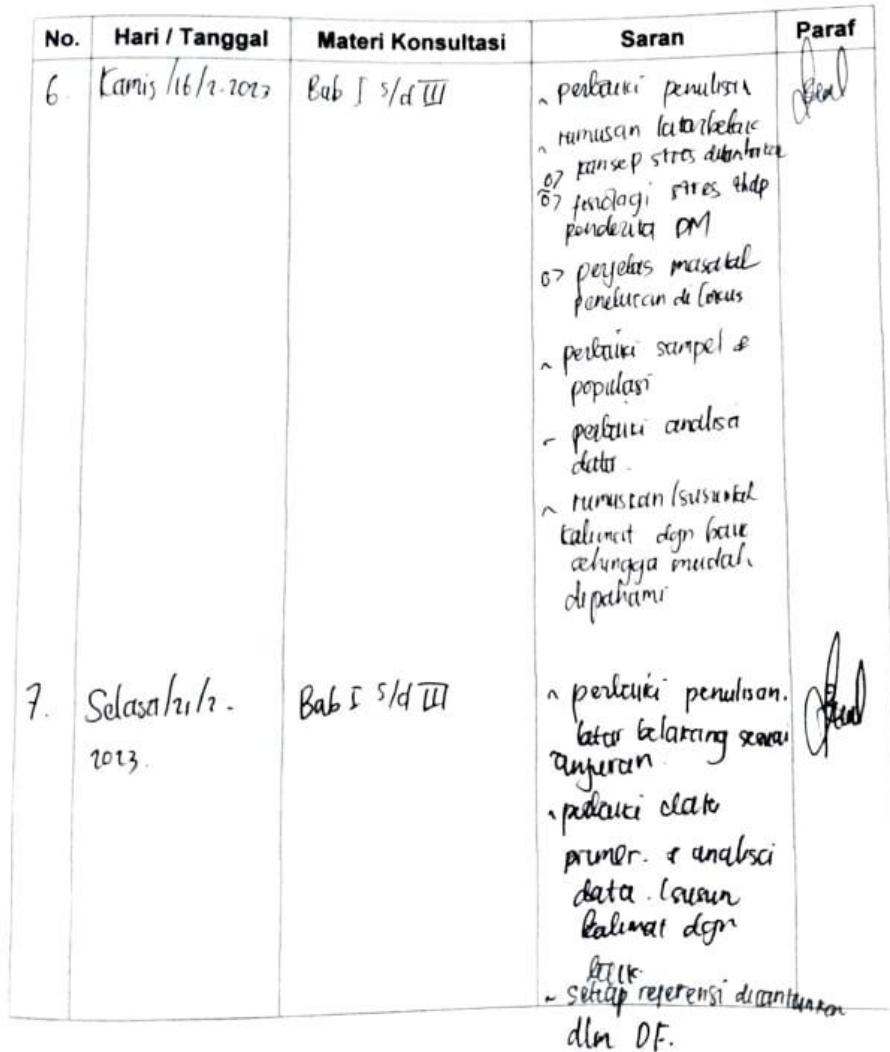 No. Hari / Tanggal Materi Konsultasi Saran Paraf
6. Kamis /16/2.2023 Bab I s/d III - perbaiki penulisan
- rumusan latarbelak
o> konsep stres ditambahkan
o> fisiologi stres thdp
penderita DM
o> penjelas masalah
penelitian di lokus
- perbaiki sampel &
populasi
- perbaiki analisa
data.
- rumuskan /susunlah
kalimat dgn baik
sehingga mudah
dipahami
7. Selasa/21/2. Bab I s/d III - perbaiki penulisan.
2023. latar belakang sesuai
anjuran
- perbaiki data
primer. & analisa
data. (susun
kalimat dgn
baik
- setiap referensi dicantumkan
dlm DF.